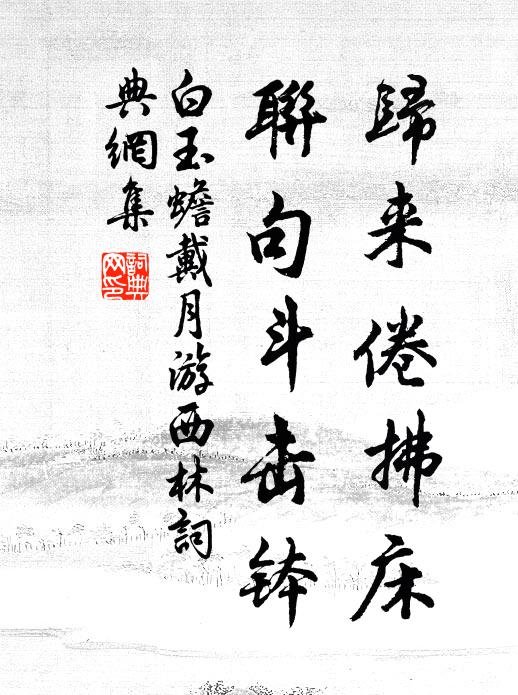 歸来倦拂床
聯句斗击鉢
白玉蟾戴月游西林詞
典網集
詞典網印